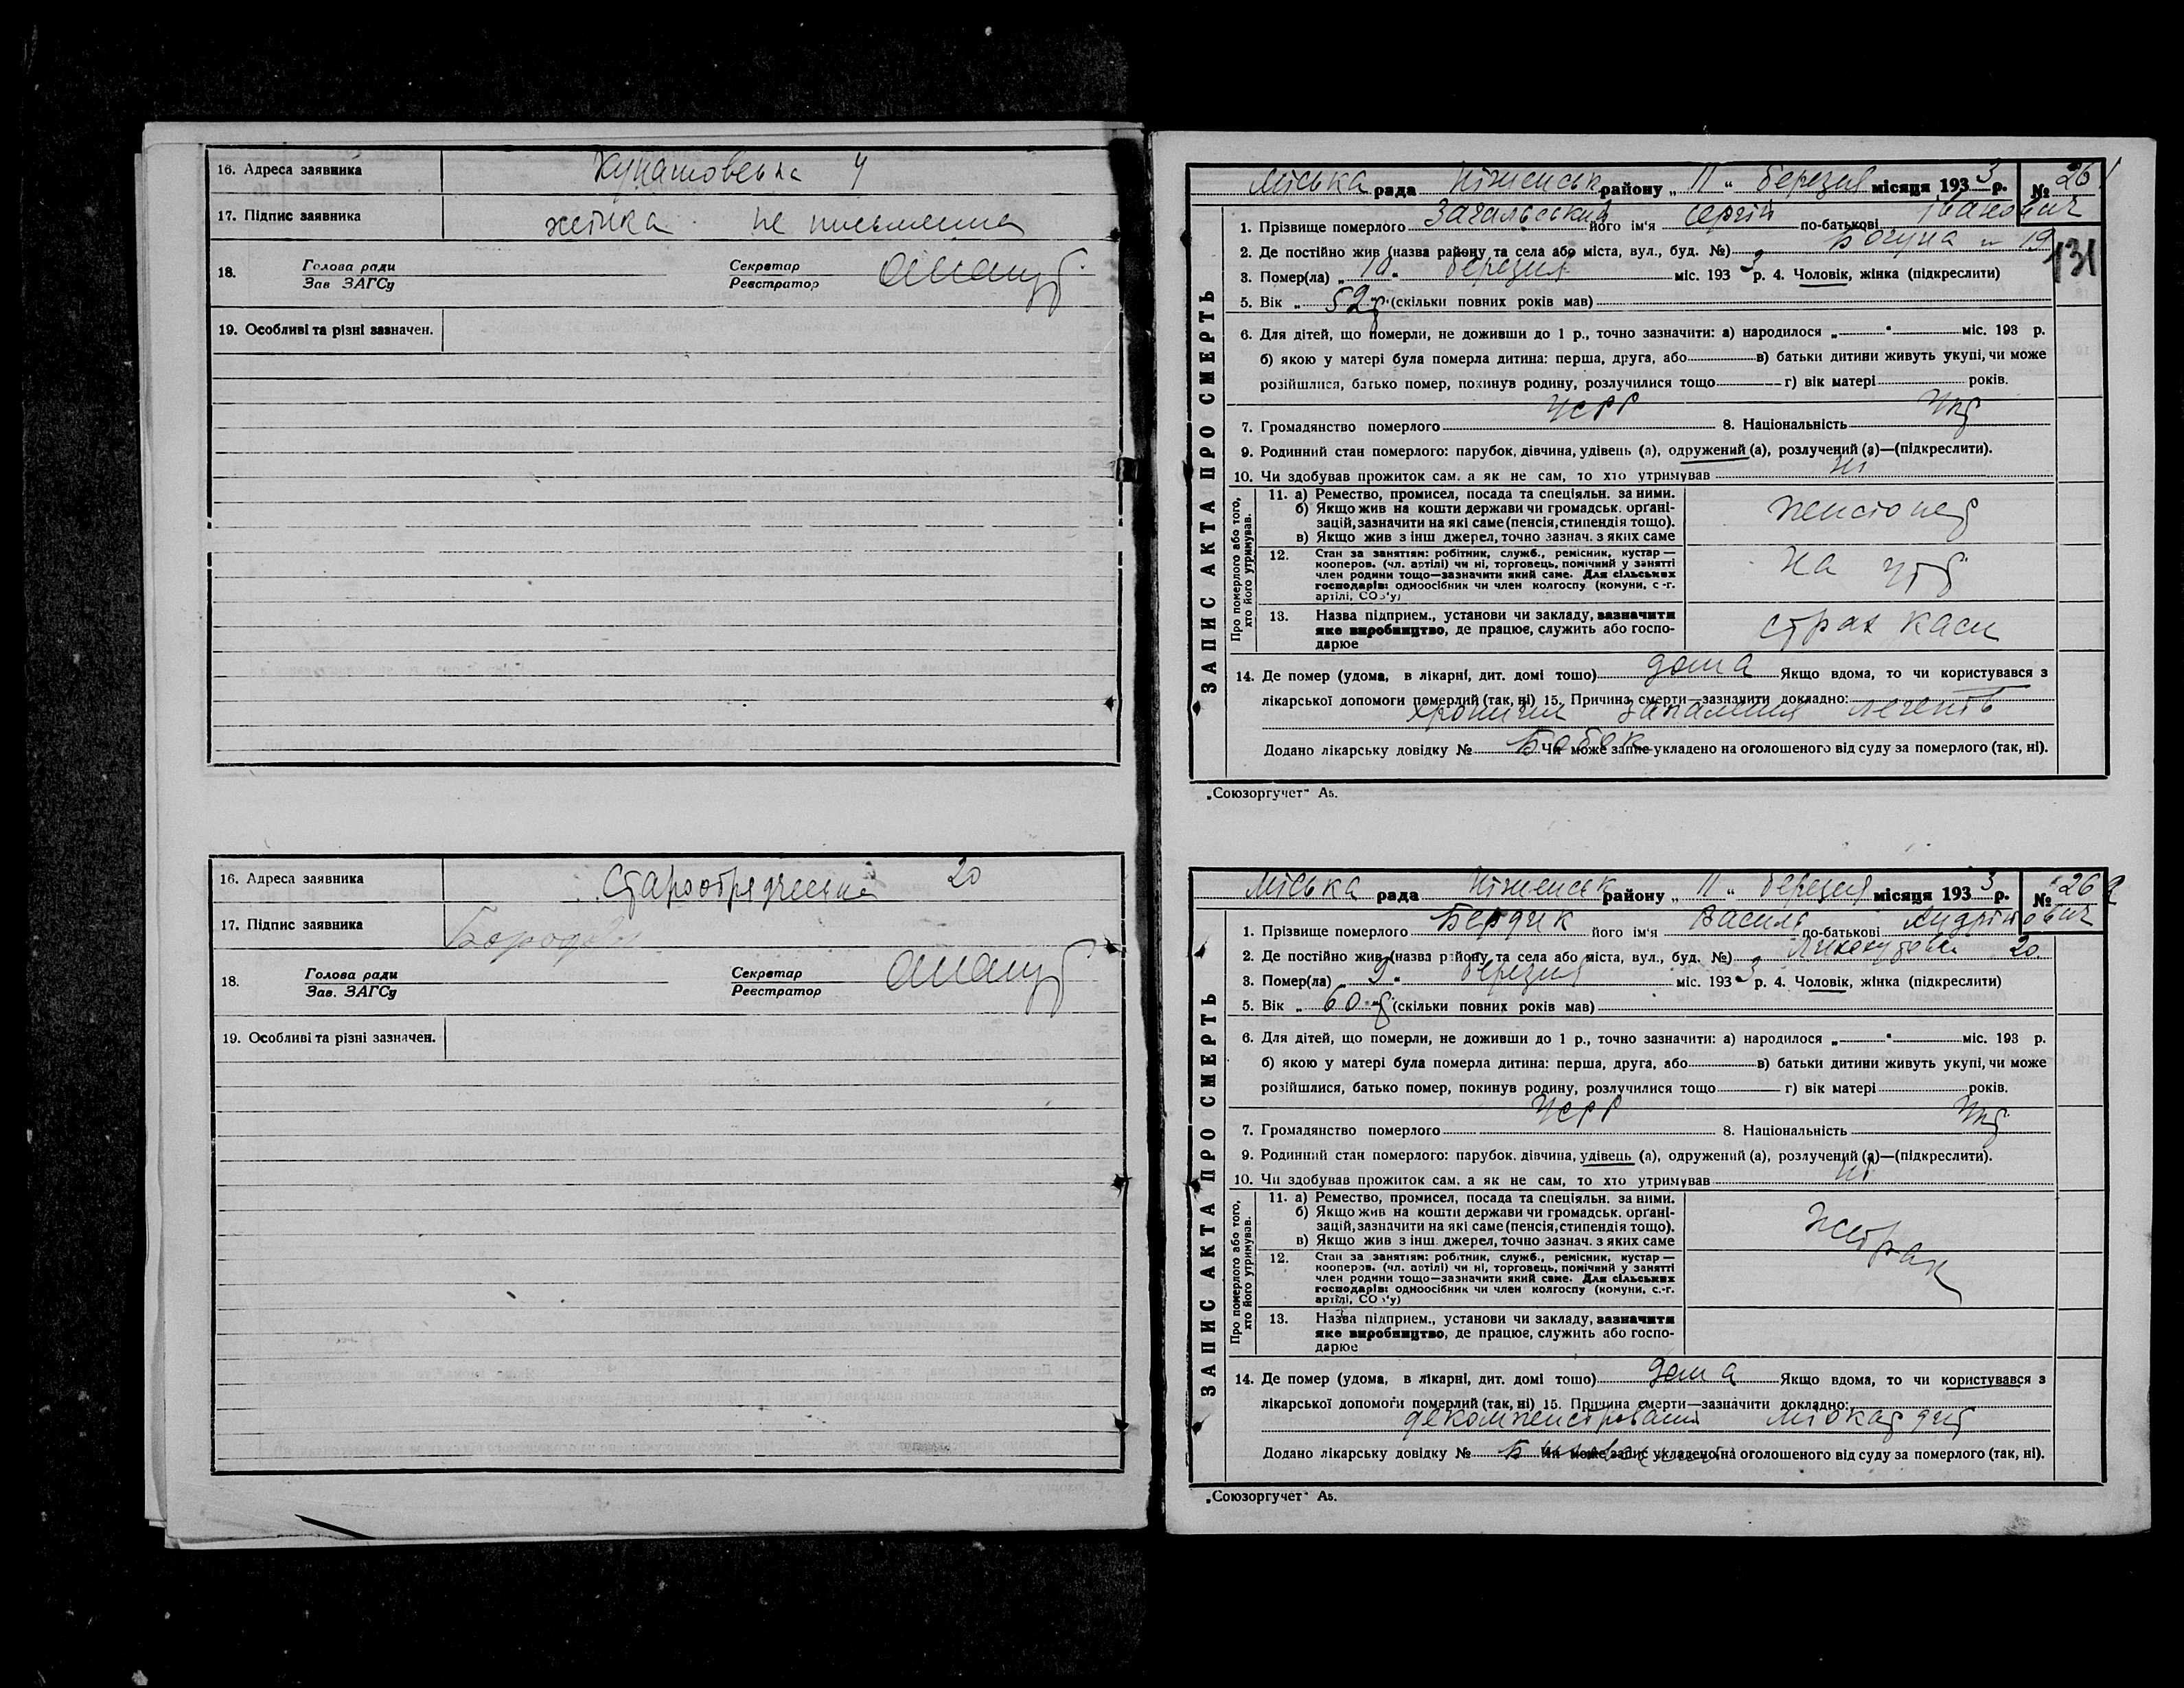 16. Адреса заявника Кунашовська 4
17. Підпис заявника жінка не письменна
18. Голова ради Зав ЗАГСу Секретар Реєстратор
19. Особливі та різні зазначен.
16. Адреса заявника Старообрядческа 20
17. Підпис заявника
18. Голова ради Зав. ЗАГСу Секретар Реєстратор
19. Особливі та різні зазначен.
ЗАПИС АКТА ПРО СМЕРТЬ
Міська рада Ніженськ району „ 11 " березня місяця 1933 р. № 261
1. Прізвище померлого його ім'я Сергій по-батькові Іванович
2. Де постійно жив (назва району та села або міста, вул., буд. №) Богуна 19
131
3. Помер(ла) „ 10 " березня міс. 1933 р. 4. Чоловік, жінка (підкреслити)
5. Вік „ 52 р. (скільки повних років мав)
6. Для дітей, що померли, не доживши до 1 р., точно зазначити: а) народилося „ " міс. 193 р.
б) якою у матері була померла дитина: перша, друга, або в) батьки дитини живуть укупі, чи може
розійшлися, батько помер, покинув родину, розлучилися тощо г) вік матері років.
7. Громадянство померлого УСРР 8. Національність Укр
9. Родинний стан померлого: парубок, дівчина, удівець (а), одружений (а), розлучений (а)—(підкреслити).
10. Чи здобував прожиток сам. а як не сам, то хто утримував ні
Про померлого або того, хто його утримував.
11. а) Ремество, промисел, посада та спеціяльн. за ними.
б) Якщо жив на кошти держави чи громадськ. органі-
зацій, зазначити на які саме (пенсія, стипендія тощо).
в) Якщо жив з інш джерел, точно зазнач. з яких саме
пенсіонер
12. Стан за занятям: робітник, служб., ремісник, кустар—
кооперов. (чл. артілі) чи ні, торговець, помічний у занятті
член родини тощо—зазначити який саме. Для сільських
господарів: одноосібник чи член колгоспу (комуни, с.-г.
артілі, СОЗ'у)
на утр
13. Назва підприєм., установи чи закладу, зазначити
яке виробництво, де працює, служить або госпо-
дарює
страх каси
14. Де помер (удома, в лікарні, дит. домі тощо) дома Якщо вдома, то чи користувався з
лікарської допомоги померлий (так, ні) 15. Причина смерти—зазначити докладно:
запалення легенів
Додано лікарську довідку № Чи може запис укладено на оголошеного від суду за померлого (так, ні).
„Союзоргучет" А5.
ЗАПИС АКТА ПРО СМЕРТЬ
Міська рада Ніженськ району „ 11 " березня місяця 1933 р. № 262
1. Прізвище померлого Бердик його ім'я Василь по-батькові Андрійович
2. Де постійно жив (назва району та села або міста, вул., буд. №) 20
3. Помер(ла) „ 9 " березня міс. 1933 р. 4. Чоловік, жінка (підкреслити)
5. Вік „ 60 р (скільки повних років мав)
6. Для дітей, що померли, не доживши до 1 р., точно зазначити: а) народилося „ " міс. 193 р.
б) якою у матері була померла дитина: перша, друга, або в) батьки дитини живуть укупі, чи може
розійшлися, батько помер, покинув родину, розлучилися тощо г) вік матері років.
7. Громадянство померлого УСРР 8. Національність Укр
9. Родинний стан померлого: парубок, дівчина, удівець (а), одружений (а), розлучений (а)—(підкреслити).
10. Чи здобував прожиток сам. а як не сам, то хто утримував ні
Про померлого або того, хто його утримував.
11. а) Ремество, промисел, посада та спеціяльн. за ними.
б) Якщо жив на кошти держави чи громадськ. органі-
зацій, зазначити на які саме (пенсія, стипендія тощо).
в) Якщо жив з інш. джерел, точно зазнач. з яких саме
жебрак
12. Стан за занятям: робітник, служб., ремісник, кустар—
кооперов. (чл. артілі) чи ні, торговець, помічний у занятті
член родини тощо—зазначити який саме. Для сільських
господарів: одноосібник чи член колгоспу (комуни, с.-г.
артілі, СОЗ'у)
13. Назва підприєм., установи чи закладу, зазначити
яке виробництво, де працює, служить або госпо-
дарює
14. Де помер (удома, в лікарні, дит. домі тощо) дома Якщо вдома, то чи користувався з
лікарської допомоги померлий (так, ні) 15. Причина смерти—зазначити докладно:
міокардит
Додано лікарську довідку № Чи може запис укладено на оголошеного від суду за померлого (так, ні).
„Союзоргучет" А5.